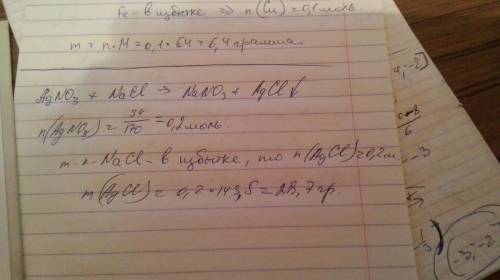 Fe - в избытке => n(Cu) = 0,1 моль.
m = n·M = 0,1 · 64 = 6,4 грамма.
AgNO₃ + NaCl → NaNO₃ + AgCl↓
n(AgNO₃) = 34/170 = 0,2 моль.
т.к. NaCl - в избытке, то n(AgCl) = 0,2 м
m(AgCl) = 0,2 · 143,5 = 28,7 гр.